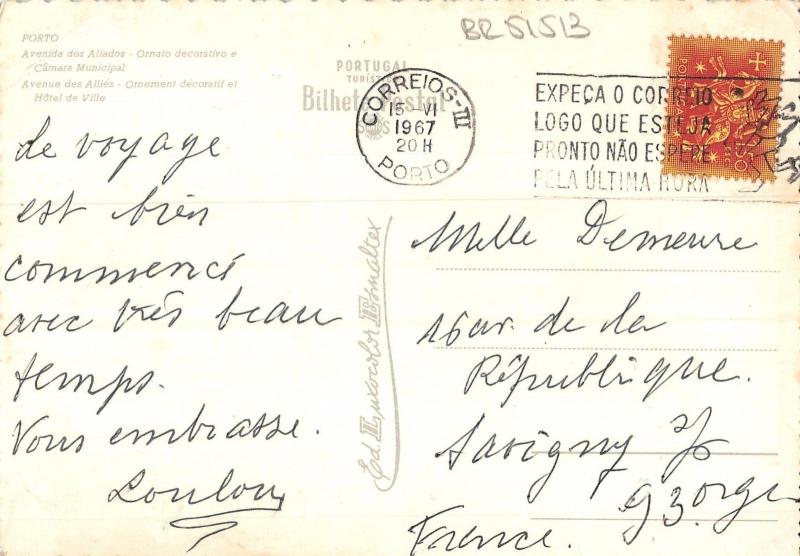 BR51513
PORTO
Avenida dos Aliados - Ornato decorativo e
Câmara Municipal
Avenue des Alliés - Ornement décoratif et
Hôtel de Ville
PORTUGAL
TURÍSTICO
Bilhete Postal
CORREIOS-III
15-VI
1967
20H
PORTO
EXPEÇA O CORREIO
LOGO QUE ESTEJA
PRONTO NÃO ESPERE
PELA ÚLTIMA HORA
de voyage
est bien
commencé
avec très beau
temps.
Vous embrasse.
Loulou
Ed. Luxocolor Esmaltex
Melle Demeure
16 av. de la
République.
Savigny s/
93. Orge
France.